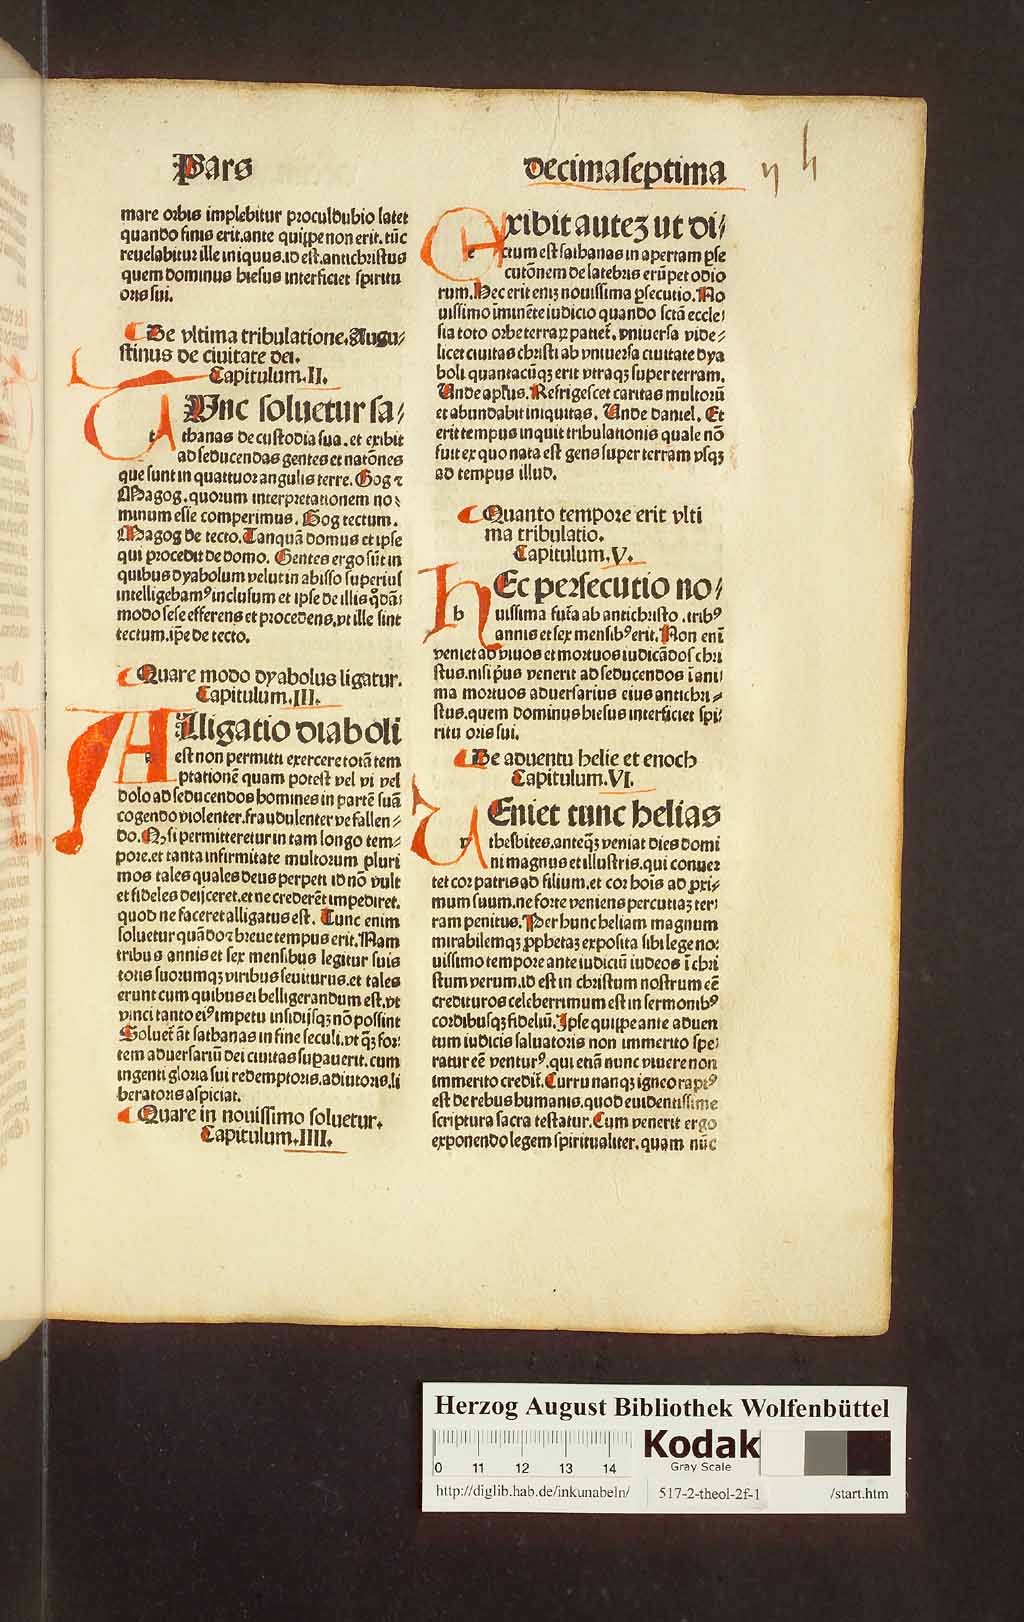 Pars decimaseptima
mare orbis implebitur proculdubio latet
quando finis erit.ante quippe non erit.tūc
reuelabitur ille iniquus.id est.antichristus
quem dominus hiesus interficiet spiritu
oris sui.
De vltima tribulatione.Augu-
stinus de ciuitate dei.
Capitulum.II.
TUnc soluetur sa-
thanas de custodia sua.et exibit
ad seducendas gentes et natōnes
que sunt in quattuor angulis terre. Gog ⁊
Magog.quorum interpretationem no-
minum esse comperimus. Gog tectum.
Magog de tecto.Tanquā domus et ipse
qui procedit de domo. Gentes ergo sūt in
quibus dyabolum velut in abisso superius
intelligebamꝰ inclusum et ipse de illis q̄dā-
modo sese efferens et procedens.vt ille sint
tectum.ip̄e de tecto.
Quare modo dyabolus ligatur.
Capitulum.III.
ALligatio diaboli
est non permitti exercere totā tem
ptationē quam potest vel vi vel
dolo ad seducendos homines in partē suā
cogendo violenter.fraudulenter ve fallen-
do.Qꝫ si permitteretur in tam longo tem-
pore.et tanta infirmitate multorum pluri
mos tales quales deus perpeti id nō vult
et fideles deijceret.et ne crederēt impediret.
quod ne faceret alligatus est. Tunc enim
soluetur quādo ⁊ breue tempus erit.Nam
tribus annis et sex mensibus legitur suis
totis suorumqꝫ viribus seuiturus.et tales
erunt cum quibus ei belligerandum est.vt
vinci tanto eiꝰ impetu insidijsqꝫ nō possint
Soluet̄ āt sathanas in fine seculi.vt qꝫ for-
tem aduersariū dei ciuitas supauerit.cum
ingenti gloria sui redemptoris.adiutoris.li
beratoris aspiciat.
Quare in nouissimo soluetur.
Capitulum.IIII.
Exibit auteꝫ ut di-
ctum est sathanas in apertam ꝑse
cutōnem de latebris erūpet odio
rum.Hec erit enīꝫ nouissima ꝑsecutio. No
uissimo imminēte iudicio quando sctā eccle-
sia toto orbe terraꝝ patiet̄. vniuersa vide-
licet ciuitas christi ab vniuersa ciuitate dya
boli quantacūqꝫ erit vtraqꝫ super terram.
Unde apl̄us. Refrigescet caritas multorū
et abundabit iniquitas. Unde daniel. Et
erit tempus inquit tribulationis quale nō
fuit ex quo nata est gens super terram vsqꝫ
ad tempus illud.
Quanto tempore erit vlti
ma tribulatio.
Capitulum.V.
hEc persecutio no-
uissima fut̄a ab antichristo.tribꝰ
annis et sex mensibꝰ erit. Non eni
veniet ad viuos et mortuos iudicādos chri
stus.nisi p̄us venerit ad seducendos ī ani
ma mortuos aduersarius eius antichri-
stus.quem dominus hiesus interficiet spi-
ritu oris sui.
De aduentu helie et enoch
Capitulum.VI.
UEniet tunc helias
thesbites.anteqꝫ veniat dies domi
ni magnus et illustris.qui conuer
tet cor patris ad filium.et cor hoīs ad ꝓxi-
mum suum.ne forte veniens percutiaꝫ ter-
ram penitus. Per hunc heliam magnum
mirabilemqꝫ ꝓphetaꝫ exposita sibi lege no-
uissimo tempore ante iudiciū iudeos ī chri
stum verum.id est in christum nostrum eē
credituros celeberrimum est in sermonibꝰ
cordibusqꝫ fideliū. Ipse quippe ante aduen
tum iudicis saluatoris non immerito spe-
ratur eē venturꝰ.qui etiā nunc viuere non
immerito credit̄. Curru nanqꝫ igneo raptꝰ
est de rebus humanis.quod euidentissime
scriptura sacra testatur. Cum venerit ergo
exponendo legem spiritualiter.quam nūc
Herzog August Bibliothek Wolfenbüttel
Kodak
Gray Scale
0 11 12 13 14
http://diglib.hab.de/inkunabeln/ 517-2-theol-2f-1 /start.htm